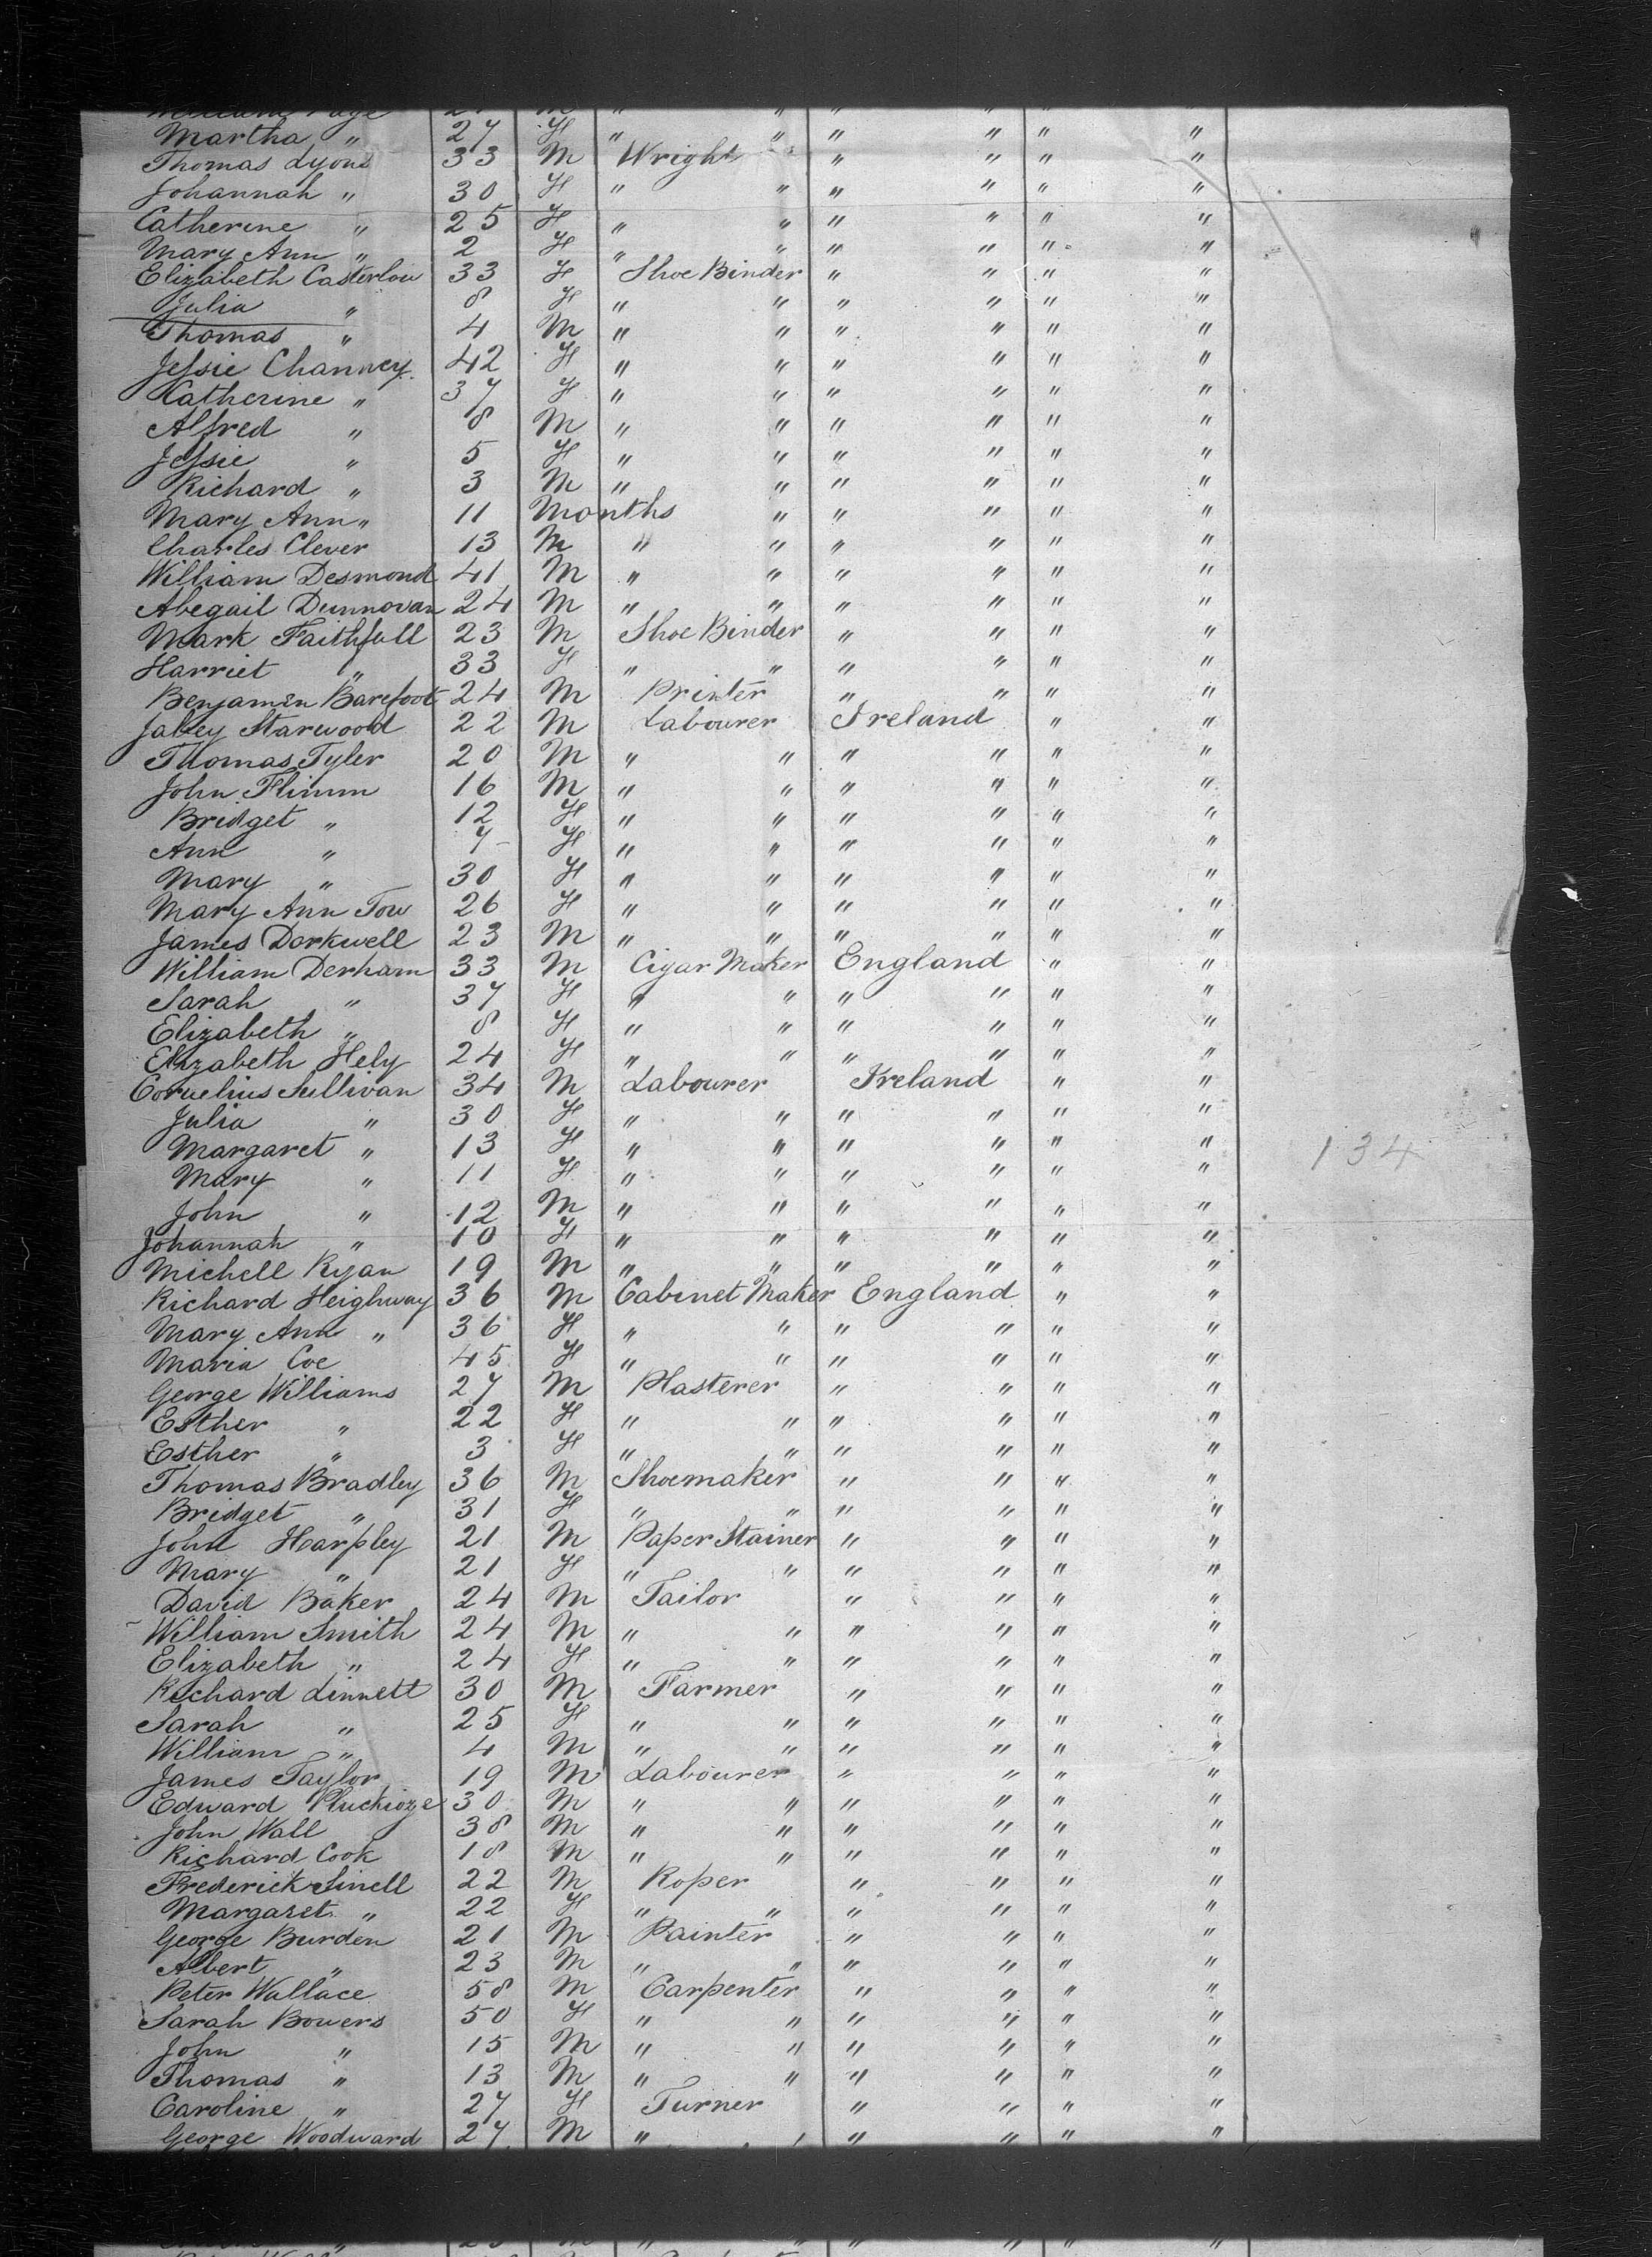 William Page 27 M " " " " " "
Martha " 27 F " " " " " "
Thomas Lyons 33 M Wright " " " "
Johannah " 30 F " " " " " "
Catherine " 25 F " " " " " "
Mary Ann " 2 F " " " " " "
Elizabeth Casterlow 33 F Shoe Binder " " " "
Julia " 8 F " " " " " "
Thomas " 4 M " " " " " "
Jessie Channey 42 F " " " " " "
Catherine " 37 F " " " " " "
Alfred " 8 M " " " " " "
Jessie " 5 F " " " " " "
Richard " 3 M " " " " " "
Mary Ann " 11 Months " " " " "
Charles Clever 13 M " " " " " "
William Desmond 41 M " " " " " "
Abegail Dunnovan 24 M " " " " " "
Mark Faithfull 23 M Shoe Binder " " " "
Harriet " 33 F " " " " " "
Benjamin Barefoot 24 M Printer " " " "
Jabey Starwood 22 M Labourer Ireland " "
Thomas Tyler 20 M " " " " " "
John Flinnn 16 M " " " " " "
Bridget " 12 F " " " " " "
Ann " 7 F " " " " " "
Mary " 30 F " " " " " "
Mary Ann Tow 26 F " " " " " "
James Dorkwell 23 M " " " " " "
William Derham 33 M Cigar Maker England " "
Sarah " 37 F " " " " " "
Elizabeth " 8 F " " " " " "
Elizabeth Hely 24 F " " " " " "
Cornelius Sullivan 34 M Labourer Ireland " "
Julia " 30 F " " " " " "
Margaret " 13 F " " " " " " 134
Mary " 11 F " " " " " "
John " 12 M " " " " " "
Johannah " 10 F " " " " " "
Michell Ryan 19 M " " " " " "
Richard Heighway 36 M Cabinet Maker England " "
Mary Ann " 36 F " " " " " "
Maria Coe 45 F " " " " " "
George Williams 27 M Plasterer " " " "
Esther " 22 F " " " " " "
Esther " 3 F " " " " " "
Thomas Bradley 36 M Shoemaker " " " "
Bridget " 31 F " " " " " "
John Harpley 21 M Paper Stainer " " " "
Mary " 21 F " " " " " "
David Baker 24 M Tailor " " " "
William Smith 24 M " " " " " "
Elizabeth " 24 F " " " " " "
Richard Linnett 30 M Farmer " " " "
Sarah " 25 F " " " " " "
William " 4 M " " " " " "
James Taylor 19 M Labourer " " " "
Edward Pluckroze 30 M " " " " " "
John Wall 38 M " " " " " "
Richard Cook 18 M " " " " " "
Frederick Sinell 22 M Roper " " " "
Margaret " 22 F " " " " " "
George Burden 21 M Painter " " " "
Albert " 23 M " " " " " "
Peter Wallace 58 M Carpenter " " " "
Sarah Bowers 50 F " " " " " "
John " 15 M " " " " " "
Thomas " 13 M " " " " " "
Caroline " 27 F Turner " " " "
George Woodward 27 M " " " " " "